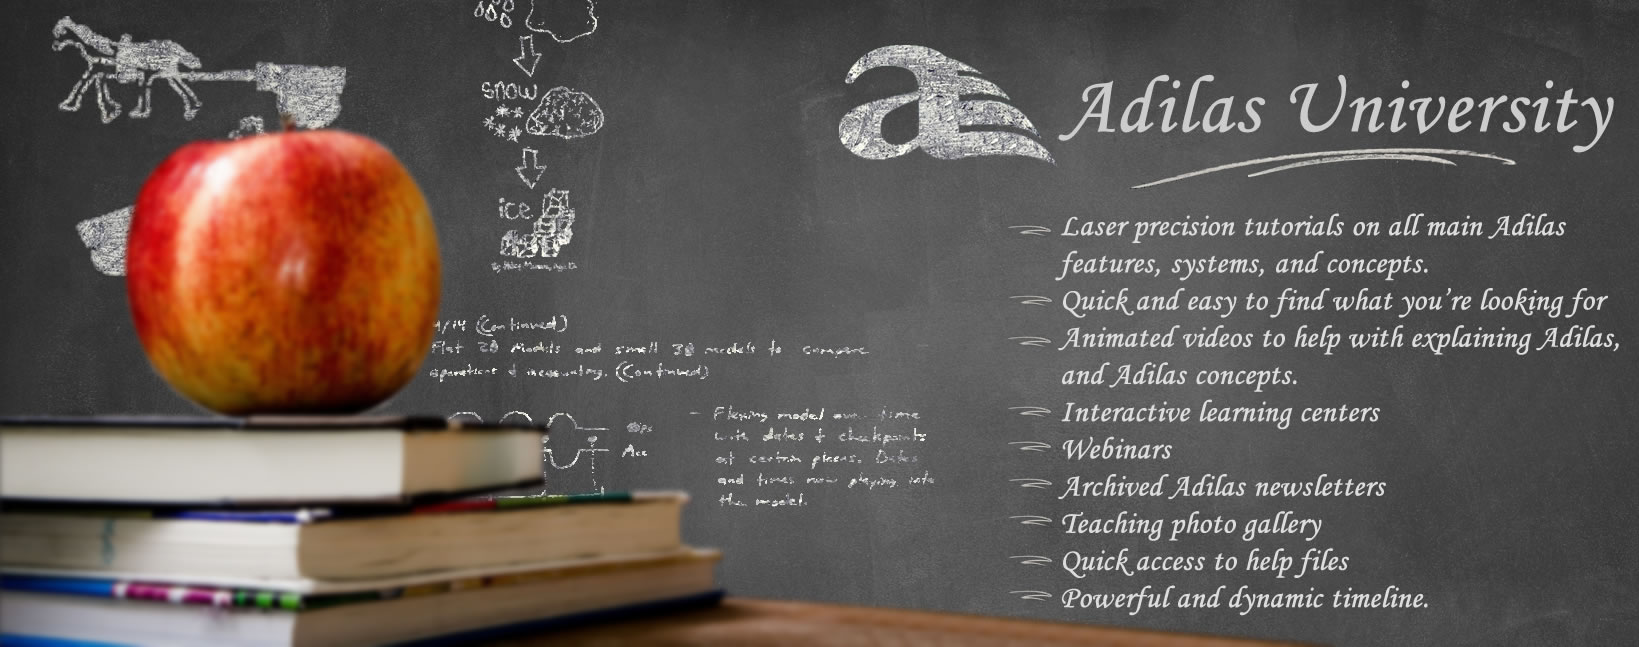 snow
ice
Adilas University
Laser precision tutorials on all main Adilas
features, systems, and concepts.
Quick and easy to find what you're looking for
Animated videos to help with explaining Adilas,
and Adilas concepts.
Interactive learning centers
Webinars
Archived Adilas newsletters
Teaching photo gallery
Quick access to help files
Powerful and dynamic timeline.
(Continued)
Flat 2D Models and small 3D models to compare
operations & accounting. (Continued)
Ops
Acc
- Flexing model over time
with dates & checkpoints
at certain places. Dates
and times now playing into
the model.